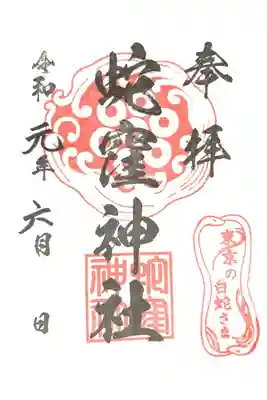 奉拝
蛇窪神社
令和元年六月 日
東京の
白蛇さま
蛇窪
神社